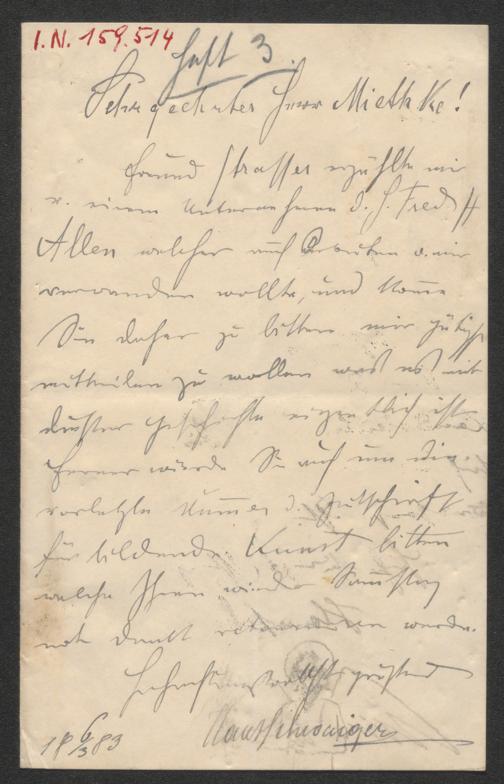 I.N. 159.514
Heft 3.
Sehr geehrter Herr Miethke!
Freund Strasser erzählte mir
v. einem Unternehmen d. H. Fred. H
Allen welcher auch Arbeiten v. mir
verwenden wollte, und komme
Sie daher zu bitten mir gütigst
mittheilen zu wollen was es mit
dieser Geschichte eigentlich ist.
Ferner würde Sie auch um die
vorletzte Nummer d. Zeitschrift
für bildende Kunst bitten
welche Ihnen wieder Samstag
mit Dank retourniren werde.
Hochachtungsvollst grüßend
Hans Schwaiger
18 6/3 83